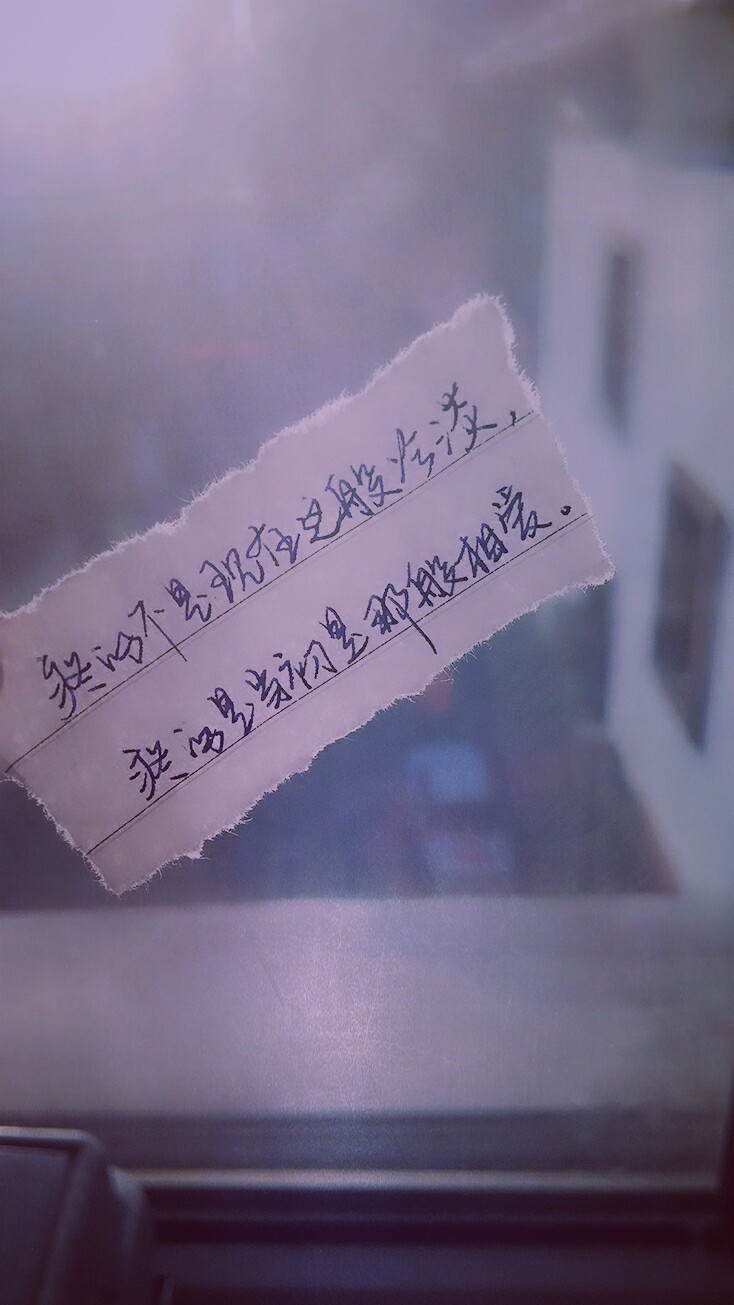 我哭不是现在这般冷淡，
我哭是当初是那般相爱。